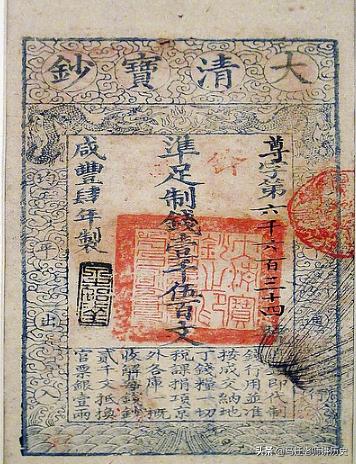 大清寶鈔
尊字第六千六百三十四號
準足制錢壹千伍百文
咸豐肆年製
即代制
錢行用並准
按成交納地
丁錢糧一切
稅課捐項京
外各庫一概
收解每錢鈔
貳千文抵換
官票銀壹兩
通行
均平出入
头条
老师讲历史